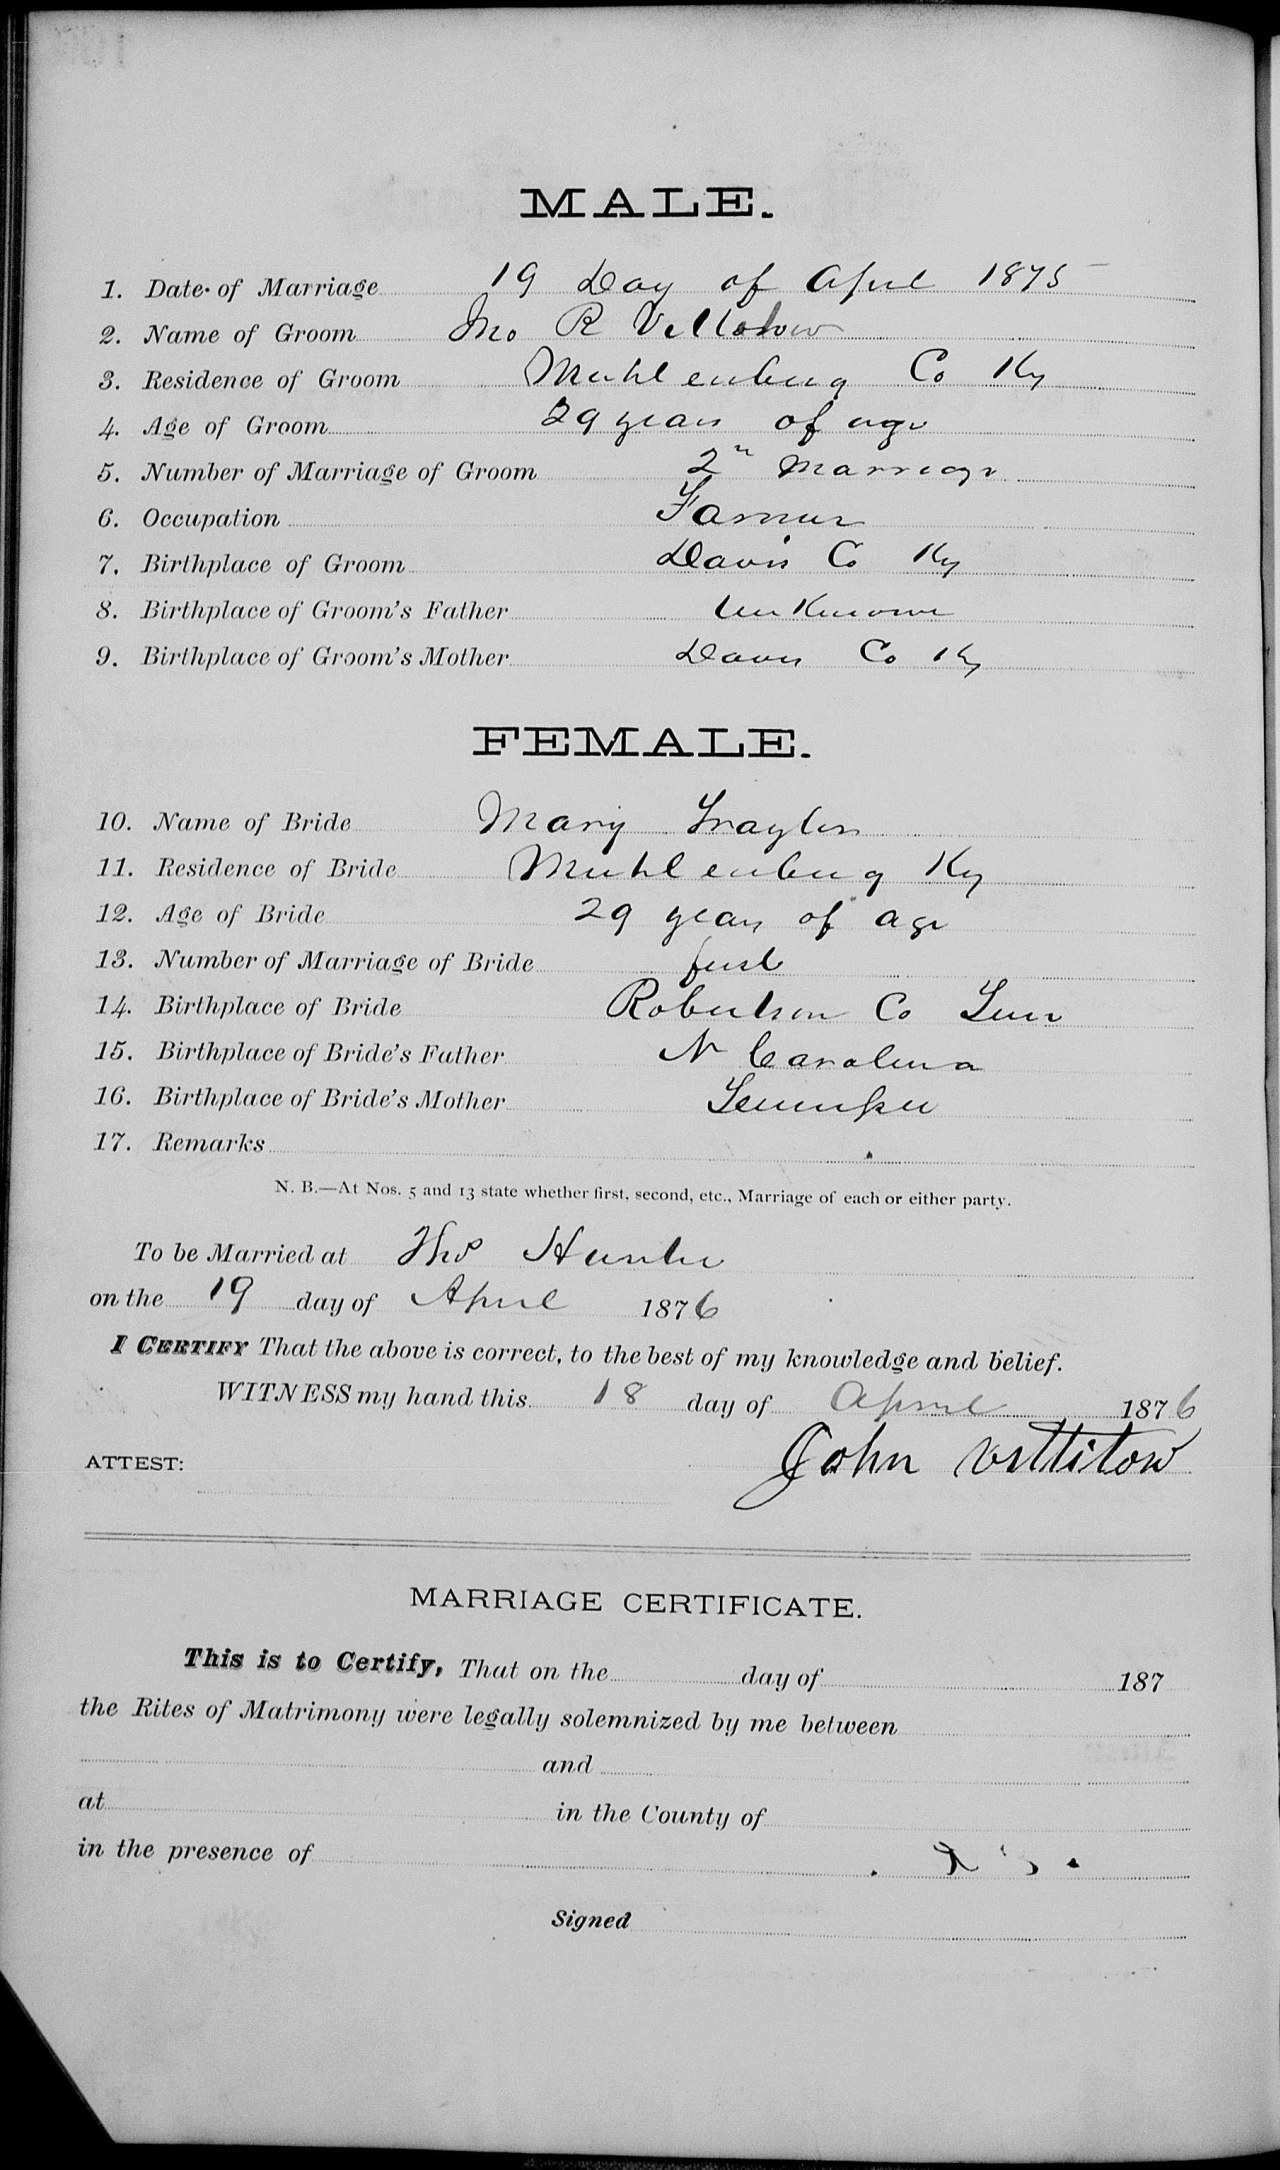 MALE.
1. Date of Marriage 19 Day of April 1875
2. Name of Groom Jno R Vettotow
3. Residence of Groom Muhlenburg Co Ky
4. Age of Groom 29 years of age
5. Number of Marriage of Groom 2n Marriage
6. Occupation Farmer
7. Birthplace of Groom Davis Co Ky
8. Birthplace of Groom's Father Unknown
9. Birthplace of Groom's Mother Davis Co Ky
FEMALE.
10. Name of Bride Mary Traylor
11. Residence of Bride Muhlenburg Ky
12. Age of Bride 29 years of age
13. Number of Marriage of Bride first
14. Birthplace of Bride Robertson Co Tenn
15. Birthplace of Bride's Father N Carolina
16. Birthplace of Bride's Mother
17. Remarks
N. B.—At Nos. 5 and 13 state whether first, second, etc., Marriage of each or either party.
To be Married at Thos Hunter
on the 19 day of April 1876
I CERTIFY That the above is correct, to the best of my knowledge and belief.
WITNESS my hand this 18 day of April 1876
John Vettitow
ATTEST:
MARRIAGE CERTIFICATE.
This is to Certify, That on the day of 187
the Rites of Matrimony were legally solemnized by me between
and
at in the County of
in the presence of
Signed